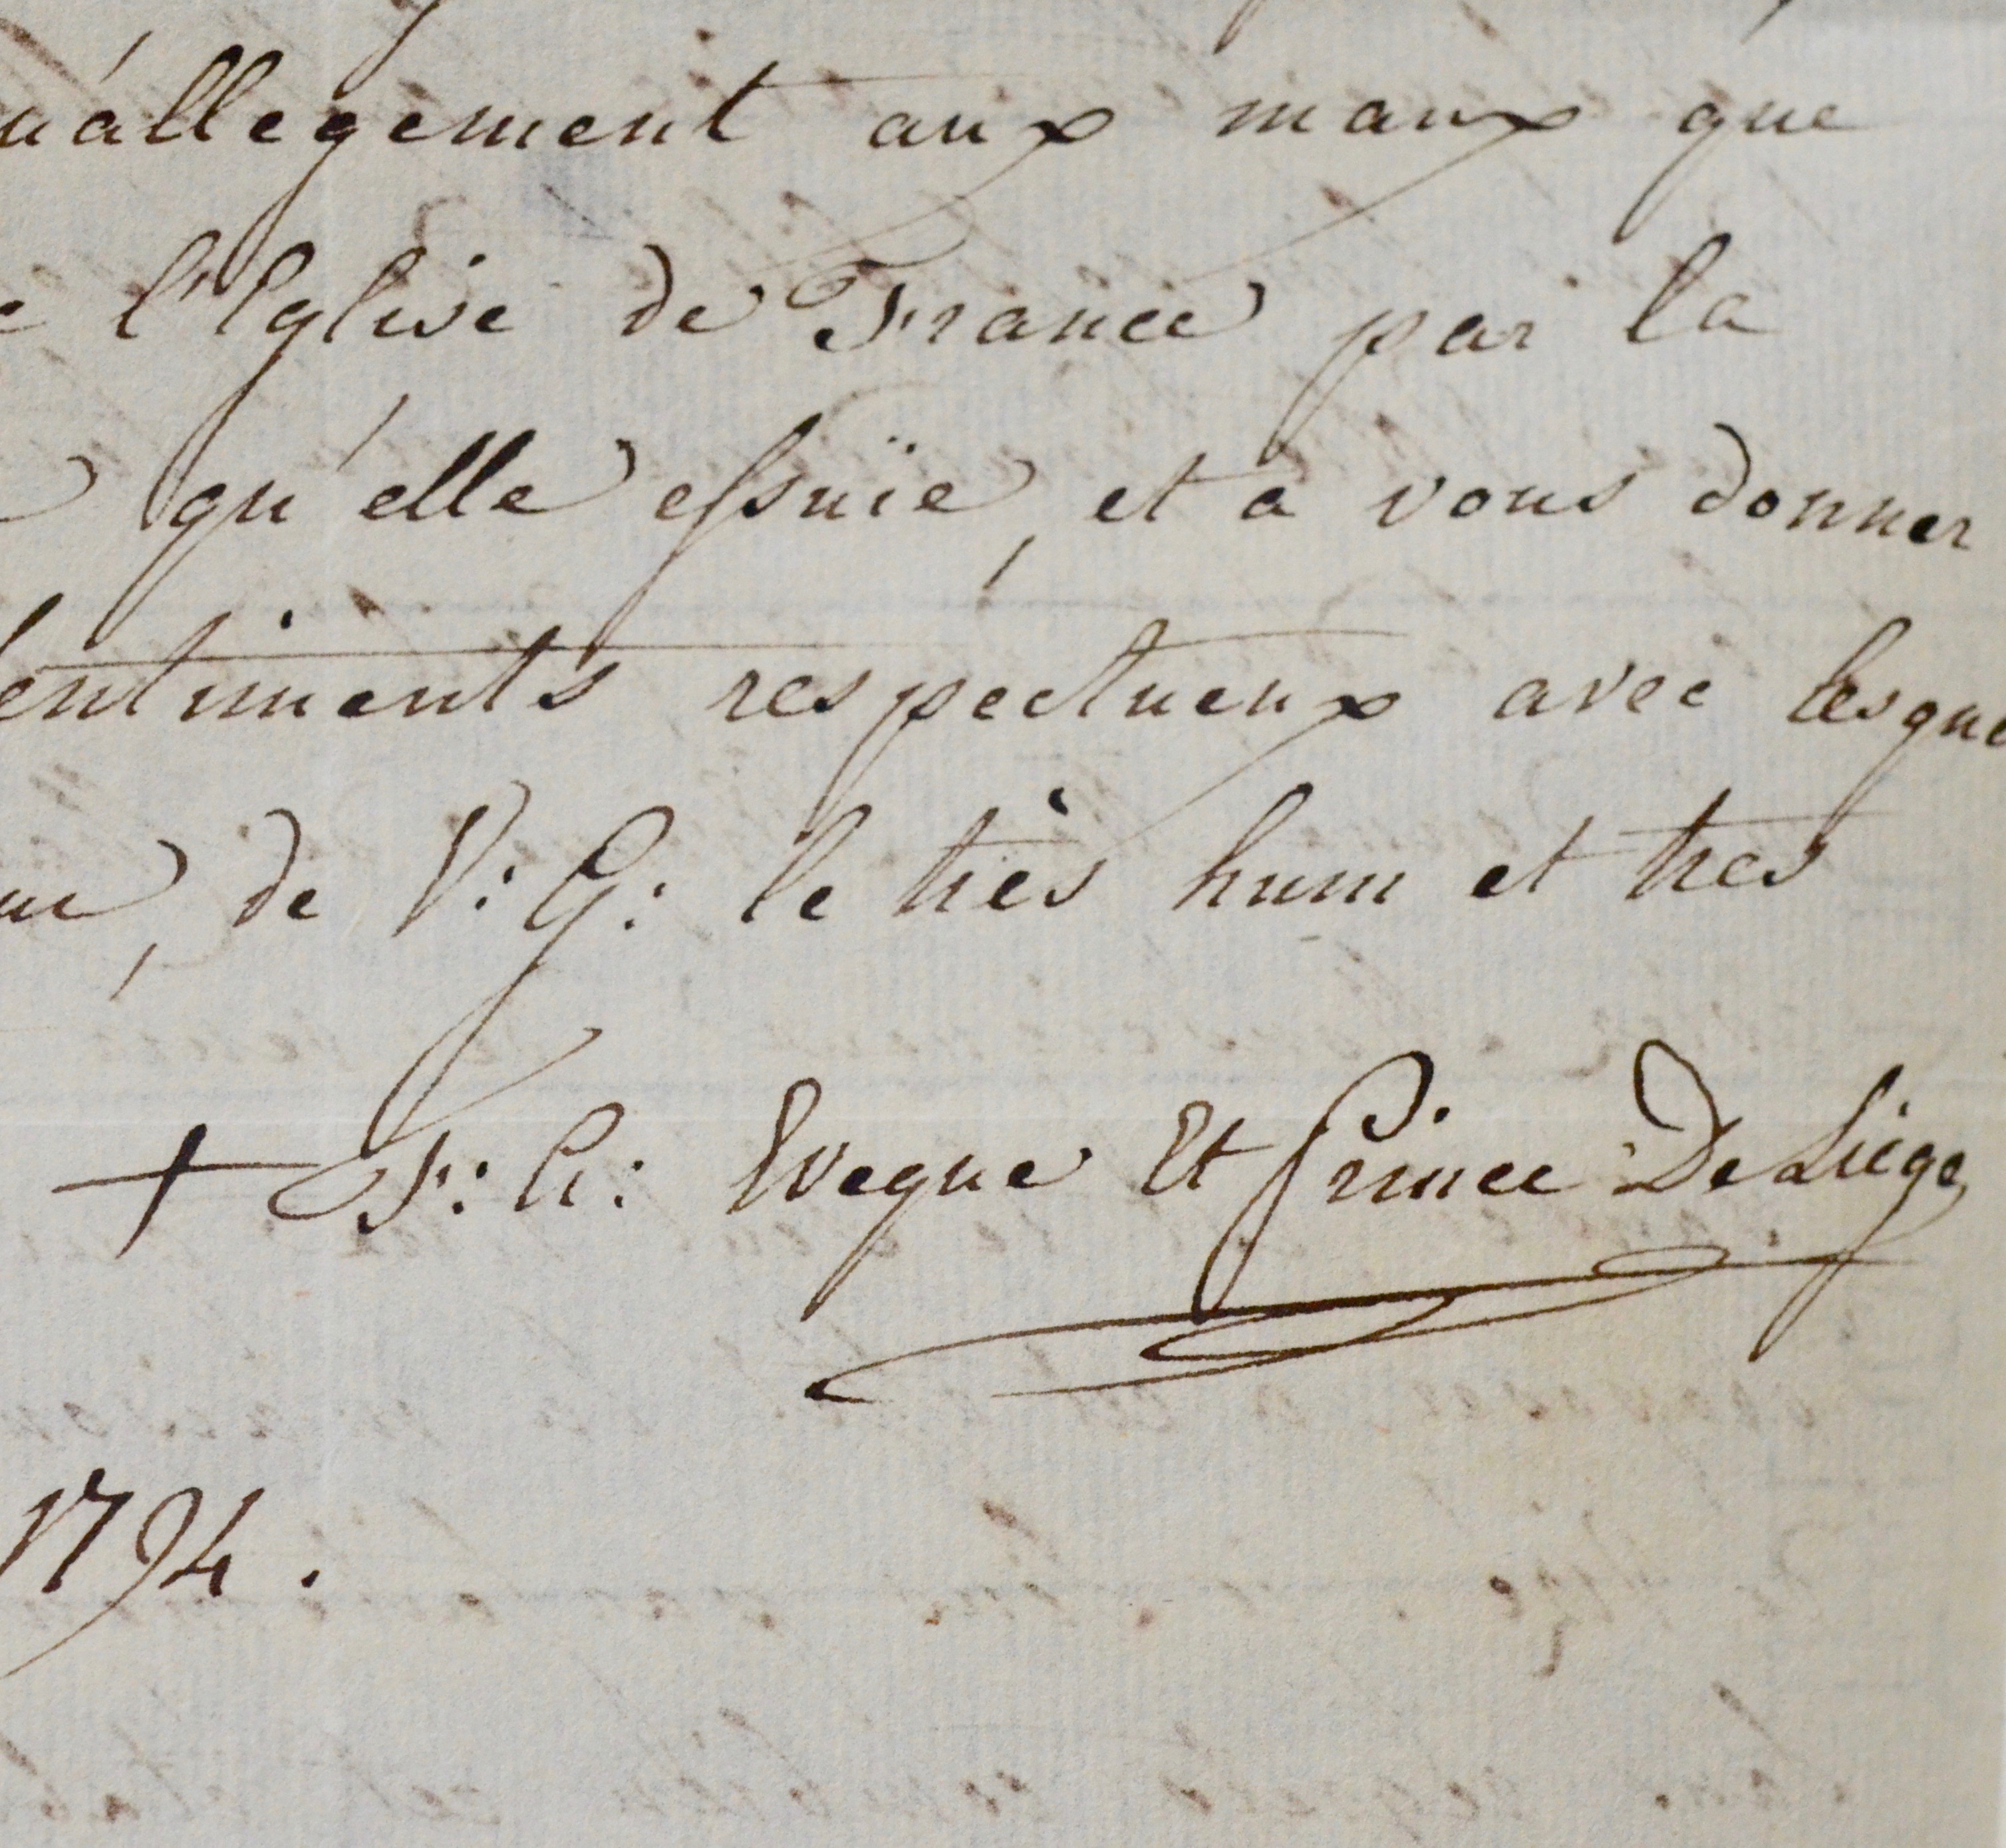 allegement aux maux que
l'Eglise de France par la
qu'elle essuïe, et a vous donner
sentiments respectueux avec lesque
de V: G: le très hum et tres
+ F: A: Eveque Et Prince De Liége
1794.